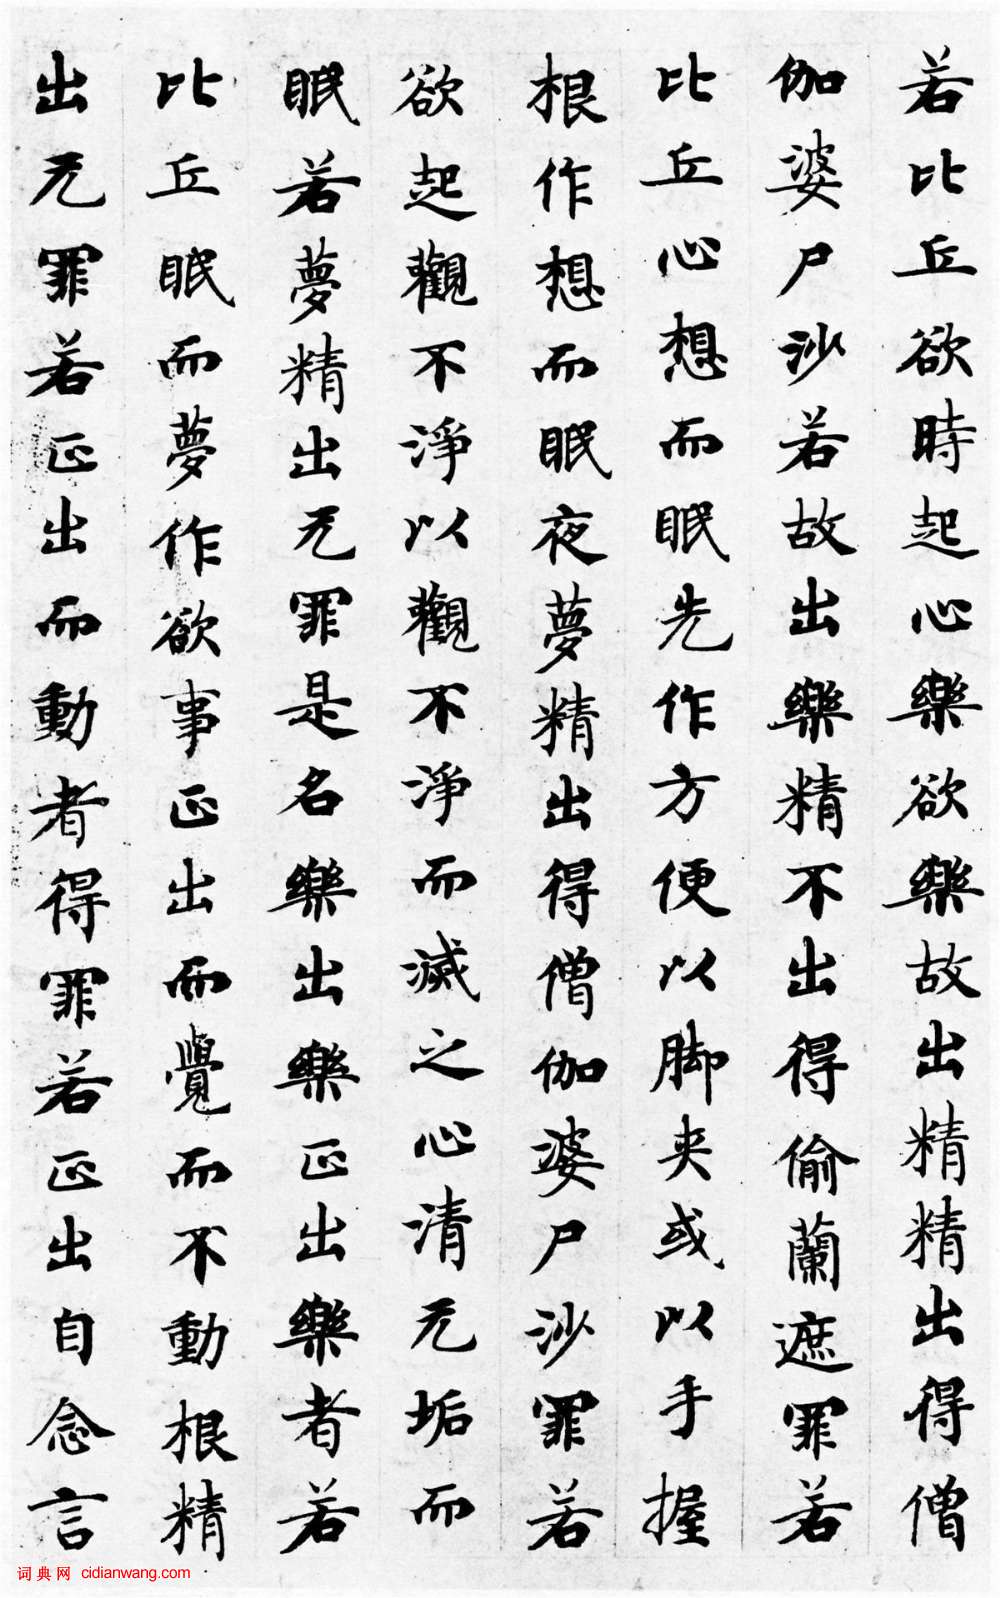 若比丘欲時起心樂欲樂故出精精出得僧
伽婆尸沙若故出樂精不出得偷蘭遮罪若
比丘心想而眠先作方便以脚夾或以手握
根作想而眠夜夢精出得僧伽婆尸沙罪若
欲起觀不淨以觀不淨而滅之心清无垢而
眠若夢精出无罪是名樂出樂正出樂者若
比丘眠而夢作欲事正出而覺而不動根精
出无罪若正出而動者得罪若正出自念言
词典网 cidianwang.com